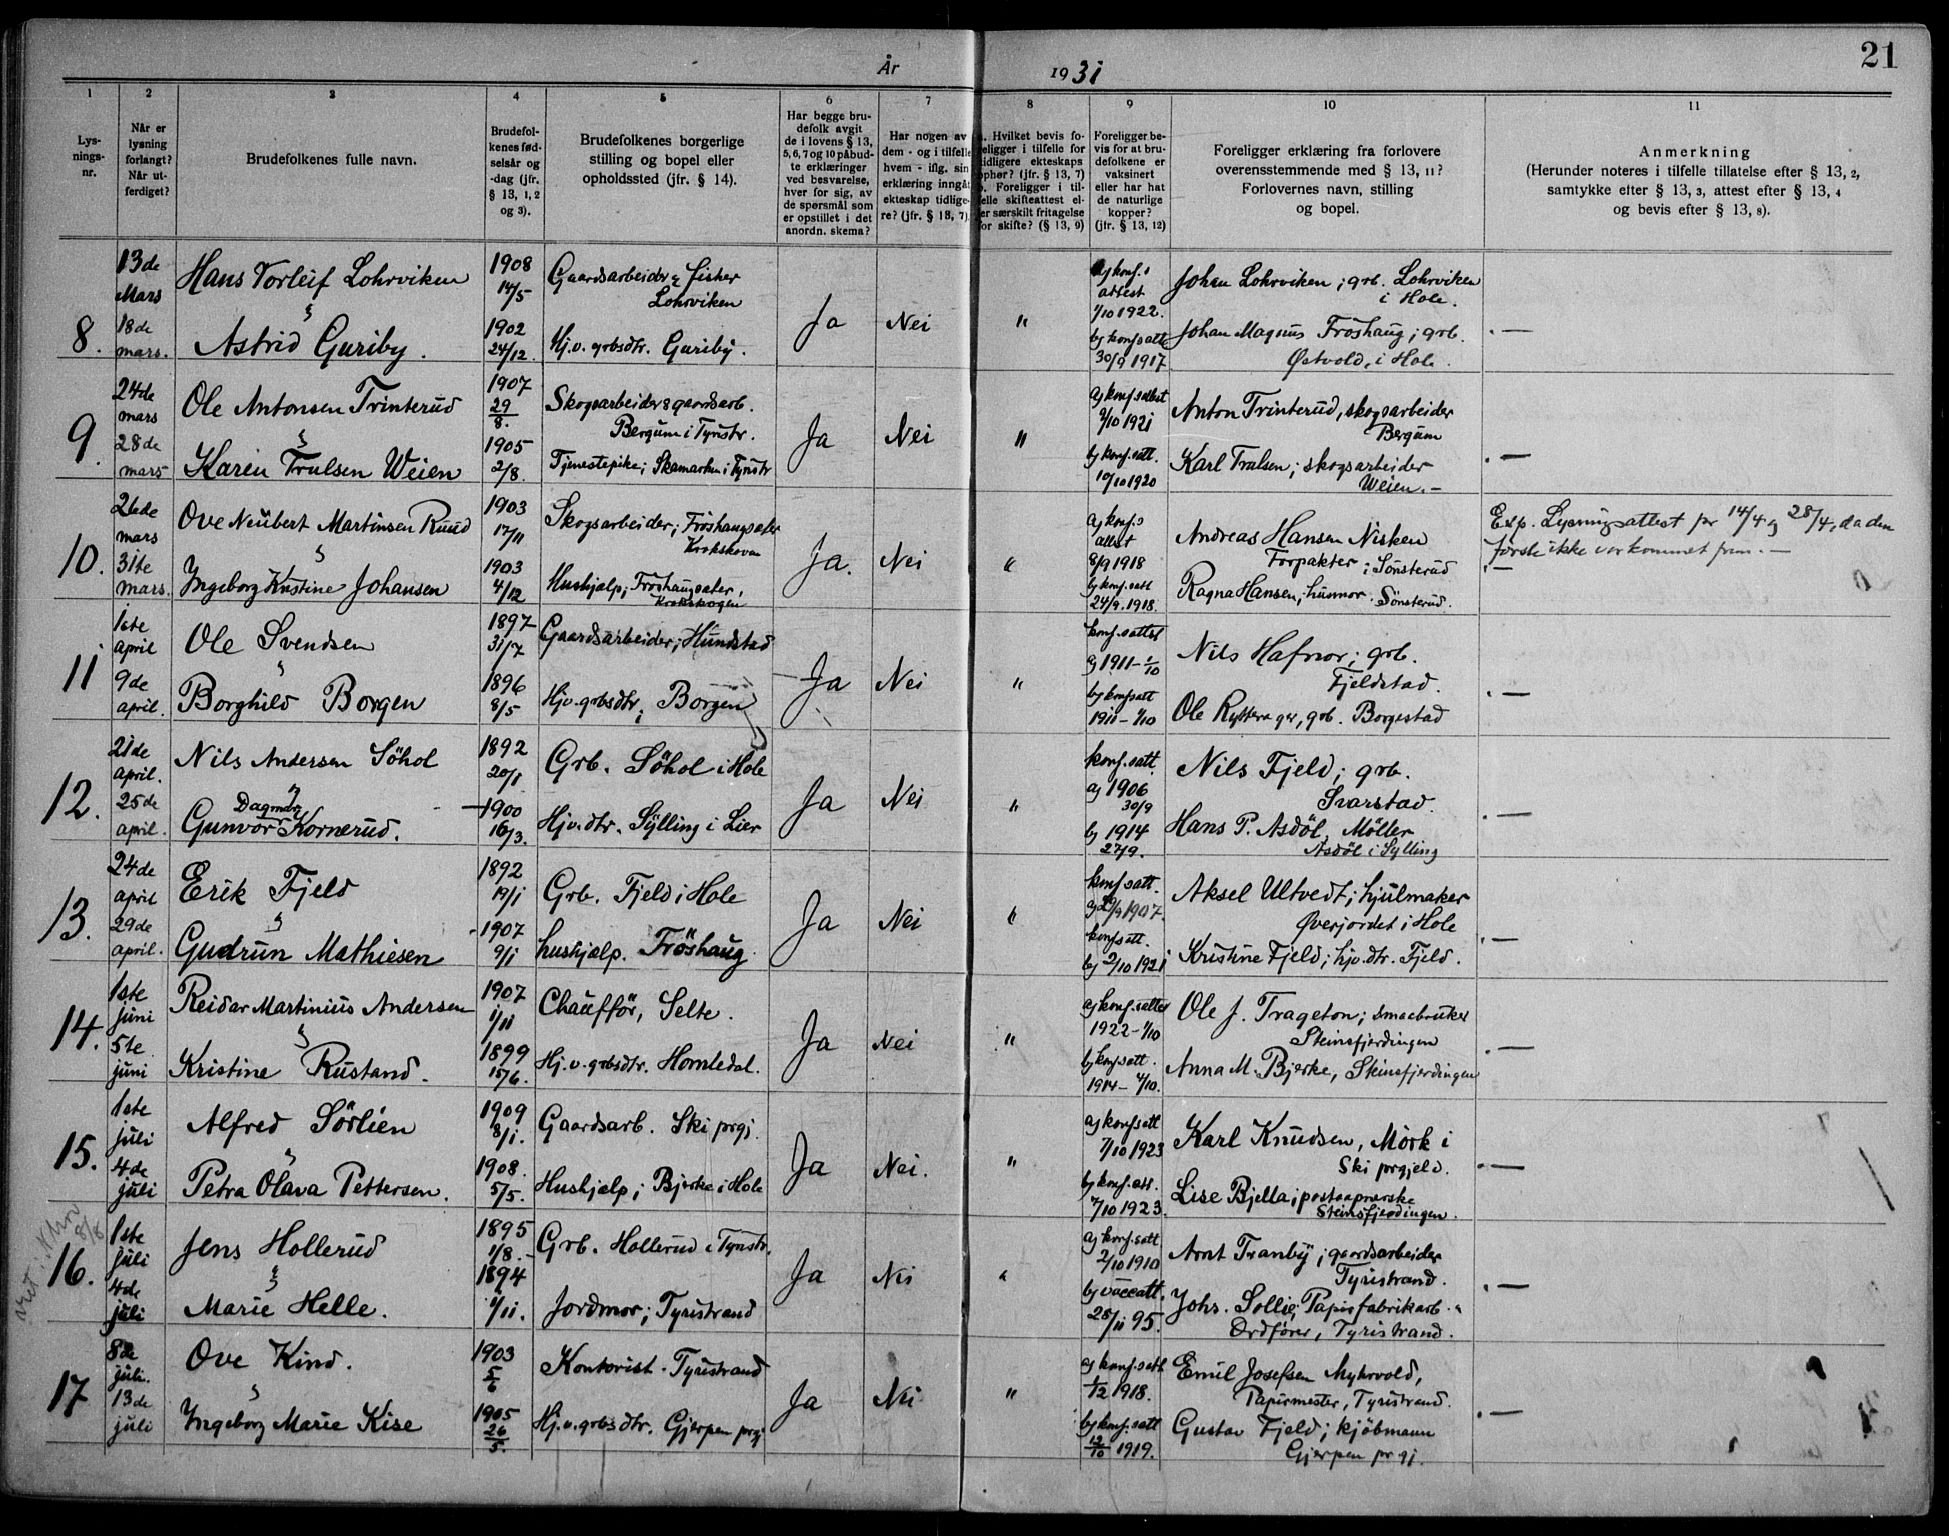 21
År 1931
1 2 3 4 5 6 7 8 9 10 11
Lys-
nings-
nr.
Når er
lysning
forlangt?
Når ut-
ferdiget?
Brudefolkenes fulle navn.
Brudefol-
kenes fød-
selsår og
-dag (jfr.
§ 13, 1, 2
og 3).
Brudefolkenes borgerlige
stilling og bopel eller
opholdssted (jfr. § 14).
Har begge bru-
defolk avgit
de i lovens § 13,
5, 6, 7 og 10 påbud-
te erklæringer
ved besvarelse,
hver for sig, av
de spørsmål som
er opstillet i det
anordn. skema?
Har nogen av
dem - og i tilfelle
hvem - iflg. sin
erklæring inngåt
ekteskap tidlige-
re? (jfr. § 13, 7).
a. Hvilket bevis fo-
religger i tilfelle for
tidligere ekteskaps
ophør? (jfr. § 13, 7)
b. Foreligger i til-
felle skifteattest el-
ler særskilt fritagelse
for skifte? (§ 13, 9)
Foreligger be-
vis for at bru-
defolkene er
vaksinert
eller har hat
de naturlige
kopper?
(jfr. § 13, 12)
Foreligger erklæring fra forlovere
overensstemmende med § 13, 11?
Forlovernes navn, stilling
og bopel.
Anmerkning
(Herunder noteres i tilfelle tillatelse efter § 13, 2,
samtykke efter § 13, 3, attest efter § 13, 4
og bevis efter § 13, 8).
8.
13de
Mars
18de
mars.
Hans Torleif Lohrviken
Astrid Guriby.
1908
14/5
1902
24/12.
Gaardsarbeider & fisker
Lohrviken
Hj.v. grbsdtr. Guriby.
Ja Nei "
a) konf.s
attest
1/10 1922.
b) konf.satt.
30/9 1917
Johan Lohrviken; grb. Lohrviken
i Hole.
Johan Magnus Fröshaug; grb.
Østvold, i Hole.
. —
9.
24de
mars
28de
mars
Ole Antonsen Trinterud
Karen Trulsen Weien
1907
29/8.
1905
2/8.
Skogsarbeider & gaardsarb.
Bergum i Tyristr.
Tjenestepike; Skamarken i Tyristr
Ja Nei "
a) konf.sattest
2/10 1921
b) konf.satt.
10/10 1920
Anton Trinterud, skogsarbeider
Bergum
Karl Trulsen; skogsarbeider
Weien. —
. —
10.
26de
mars
31te
mars.
Ove Neubert Martinsen Ruud
Ingeborg Kristine Johansen
1903
17/11
1903
4/12
Skogsarbeider; Fröshaugsæter
Krokskoven
Hushjælp; Fröshaugsæter,
Krokskogen
Ja. Nei "
a) konf.s
attest
8/9 1918
b) konf.satt
24/9. 1918.
Andreas Hansen Nisken
Forpakter i Sönsterud
Ragna Hansen; husmor. Sönsterud.
Exp. Lysningsattest pr 14/4 og 28/4, da den
förste ikke var kommet frem. —
. —
11
1ste
april
9de
april.
Ole Svendsen
Borghild Borgen
1897
31/7
1896
8/5
Gaardsarbeider; Hundstad
Hj.v. grbsdtr; Borgen
Ja Nei "
konf.sattest
a) 1911 – 1/10
b) konf.satt
1911 – 1/10
Nils Hafnor; grb.
Fjeldstad.
Ole Rytterager, grb. Borgestad
. —
12.
21de
april.
25de
april.
Nils Andersen Söhol
Dagmar
Gunvor Kornerud.
1892
20/1
1900
16/3.
Grb. Söhol i Hole
Hjv. dtr. Sylling i Lier
Ja Nei "
konf.satt.
a) 1906
30/9
b) 1914
27/9.
Nils Fjeld; grb.
Svarstad.
Hans P. Asdöl, Möller
Asdöl i Sylling
. —
13.
24de
april
29de
april.
Erik Fjeld
Gudrun Mathiesen
1892
19/1
1907
9/1
Grb. Fjeld i Hole
hushjælp. Fröshaug
Ja Nei "
konf.satt.
a) 29/9 1907.
konf.satt.
b) 2/10 1921
Aksel Ultvedt; hjulmaker
Øverjordet i Hole
Kristine Fjeld; hjv.dtr. Fjeld.
. —
14.
1ste
juni
5te
juni
Reidar Martinius Andersen
Kristine Rustand.
1907
1/11
1899
15/6.
Chaufför, Selte.
Hj.v. grbsdtr. Homledal.
Ja Nei "
a) konf.sattest
1922 – 1/10
b) konf.satt.
1914 – 4/10.
Ole J. Trageton; smaabruker
Steinsfjerdingen
Anna M. Bjerke, Steinsfjerdingen
. —
15.
1ste
juli
4de
juli
Alfred Sörlien
Petra Olava Pettersen.
1909
8/1.
1908.
5/5.
Gaardsarb. Ski prgj.
Hushjælp; Bjerke i Hole
Ja Nei. "
a) konf.satt
7/10 1923
b) konf.att.
7/10 1923.
Karl Knudsen, Mörk i
Ski prgjeld.
Lise Bjella; postaapnerske
Steinsfjerdingen.
. —
16.
8/8
1ste
juli
4de
juli
Jens Hollerud
Marie Helle.
1895
1/8.
1894
1/11.
Grb. Hollerud i Tyristr.
Jordmor; Tyristrand
Ja Nei "
a) konf.satt
2/10 1910
b) vaccatt.
28/11 95.
Arnt Tranby; gaardsarbeider
Tyristrand.
Johs. Sollie, Papirfabrikarb. &
Ordförer, Tyristrand.
. —
17
8de
juli.
13de
juli
Ove Kind.
Ingeborg Marie Kise
1903
5/6
1905
26/5.
Kontorist. Tyristrand
Hj.v. grbsdtr. Gjerpen prgj
Ja Nei "
a) konf.satt
1/12 1918.
b) konf.satt
12/10 1919.
Emil Josefsen Myhrvold,
Papirmester, Tyristrand.
Gustav Fjeld; kjöbmann
Gjerpen prgj.
. —